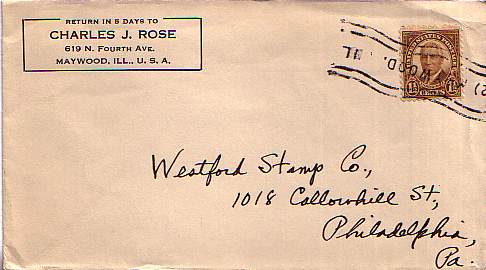 RETURN IN 5 DAYS TO
CHARLES J. ROSE
619 N. FOURTH AVE.
MAYWOOD, ILL., U. S. A.
1½ 1½
Westford Stamp Co.,
1018 Callowhill St.,
Philadelphia,
Pa.